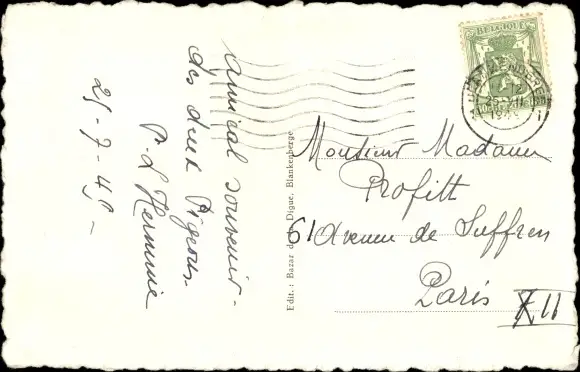 Amical souvenir -
des deux Pigeons.
P. L Hermine
25-7-49 -
Edit. : Bazar de la Digue, Blankenberge
Monsieur Madame
Profitt
61 Avenue de Suffren
Paris XII
BELGIQUE